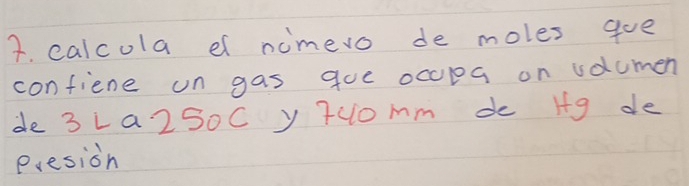 7. calcula el número de moles que
contiene un gas que ocupa un volumen
de 3 L a 250C y 740 mm de Hg de
presión